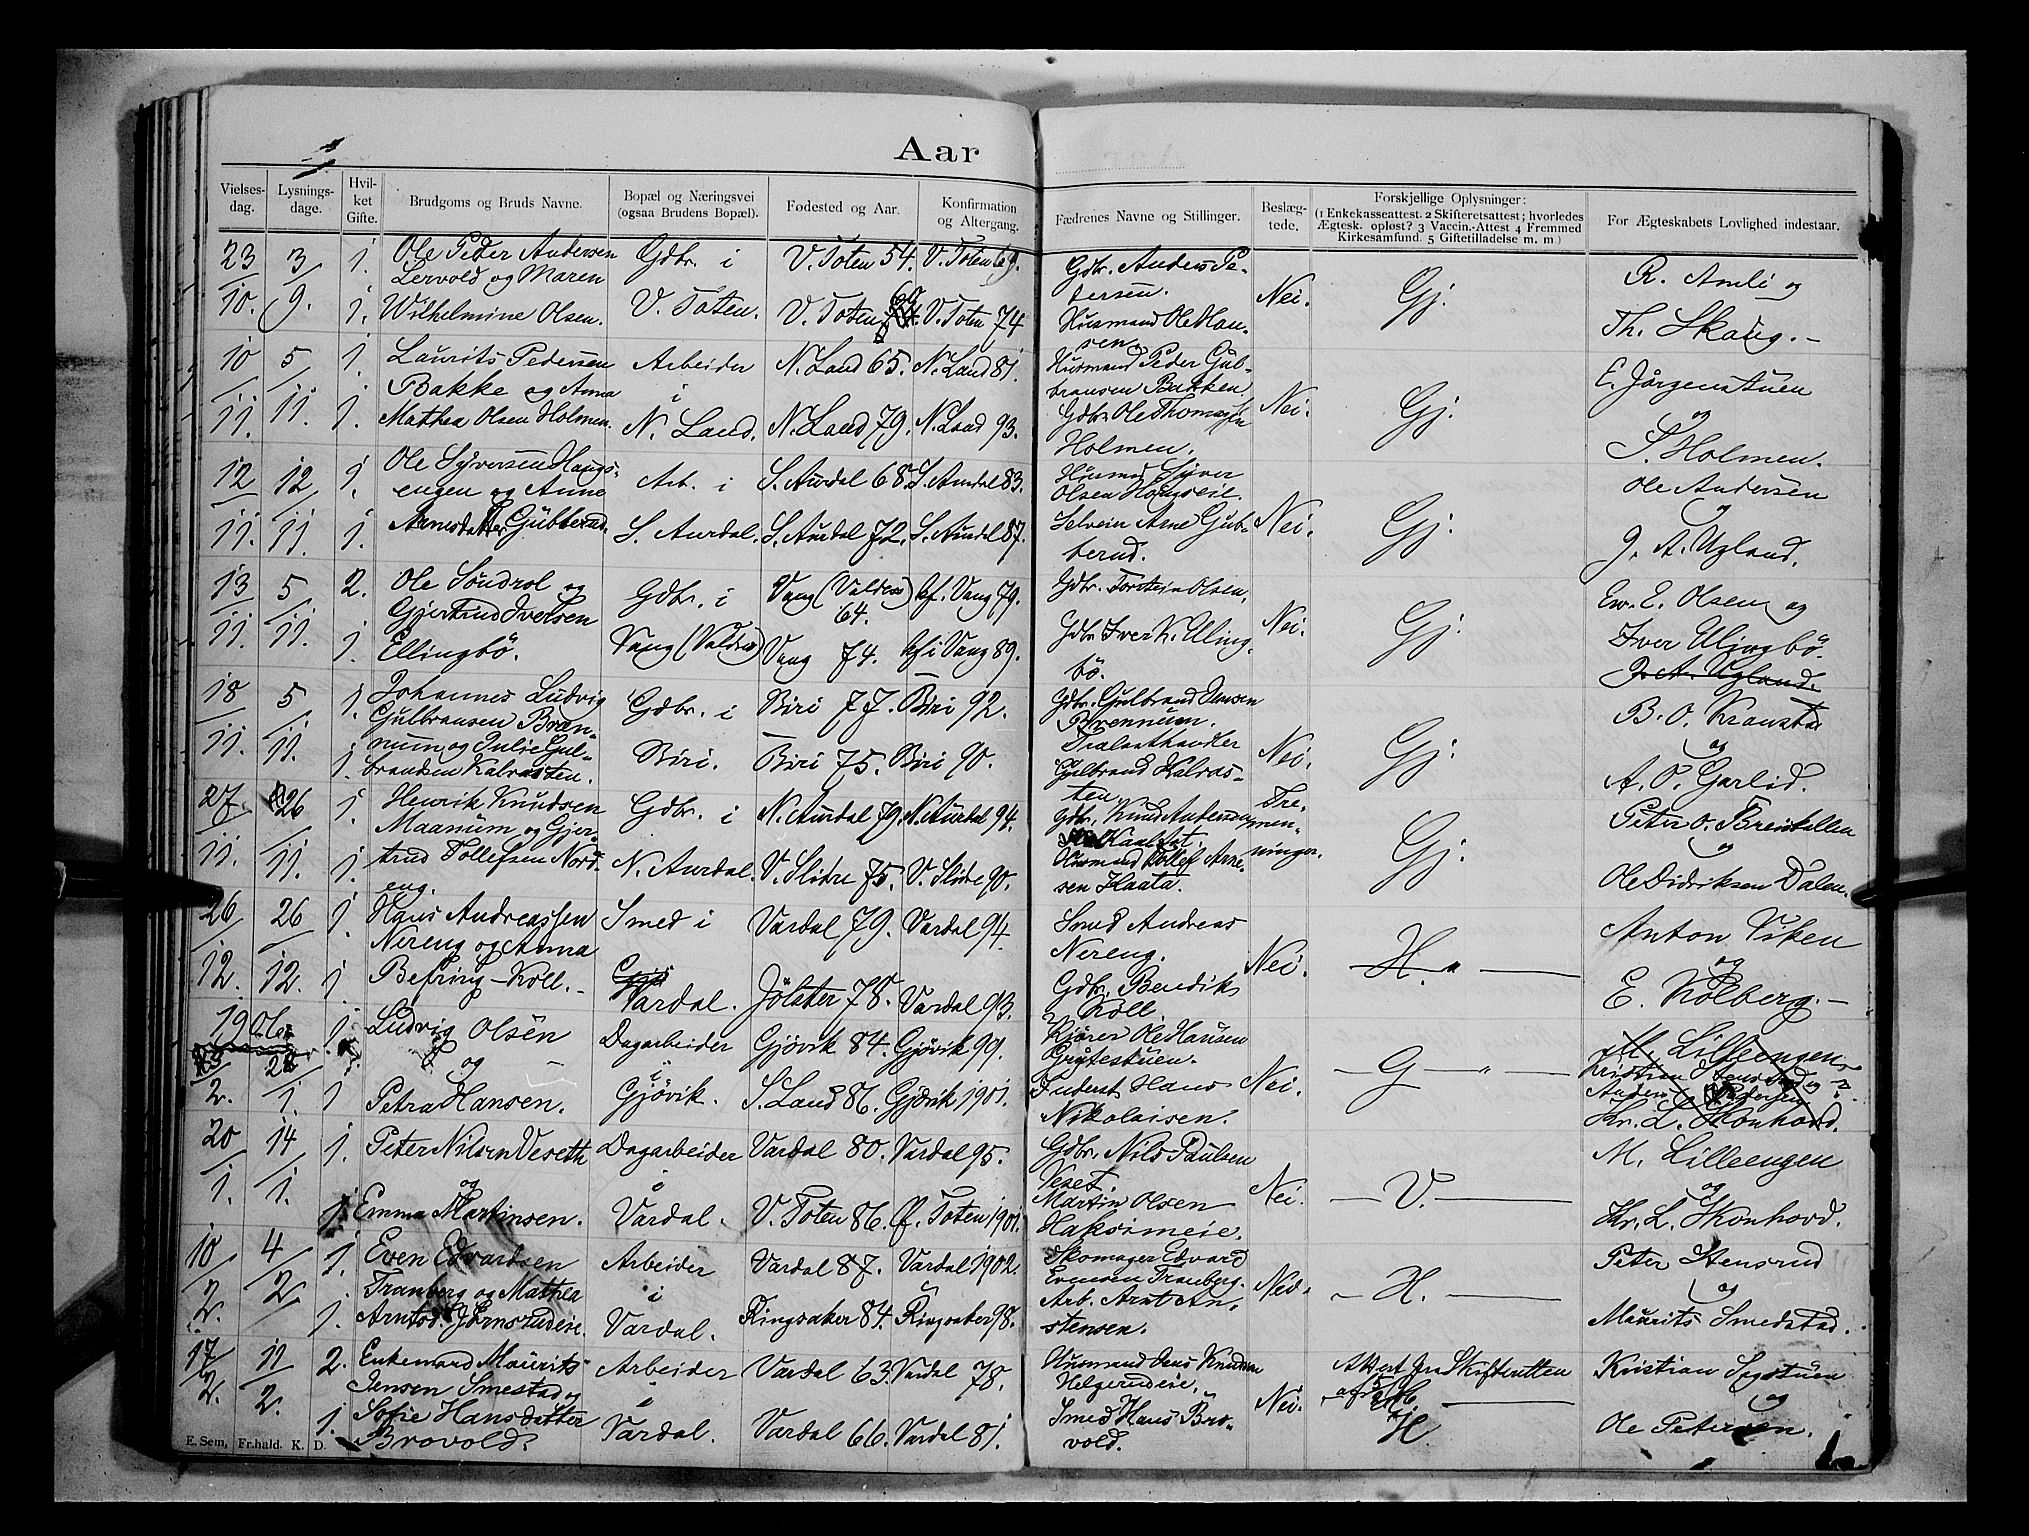 Aar
Vielses-dag.
Lysnings-dage.
Hvil-ket Gifte.
Brudgoms og Bruds Navne.
Bopæl og Næringsvei (ogsaa Brudens Bopæl).
Fødested og Aar.
Konfirmation og Altergang.
Fædrenes Navne og Stillinger.
Beslæg-tede.
Forskjellige Oplysninger:
(1 Enkekasseattest. 2 Skifteretsattest; hvorledes
Ægtesk. opløst? 3 Vaccin.-Attest 4 Fremmed
Kirkesamfund. 5 Giftetilladelse m. m)
For Ægteskabets Lovlighed indestaar.
23/10. 3/9. 1. 1.
Ole Peder Andersen
Lervold og Maren
Wilhelmine Olsen.
Gdbr. i
V. Toten.
V. Toten 54. V. Toten 69.
V. Toten 59. V. Toten 74
Gdbr. Anders Pe-
dersen.
Husmand Ole Han-
sen.
Nei. Gj.
R. Amli og
Th. Skaug. –
10/11. 5/11. 1. 1.
Laurits Pedersen
Bakke og Anna
Mathea Olsen Holmen.
Arbeider
i
N. Land.
N. Land 65. N. Land 81.
N. Land 79. N. Land 93.
Husmand Peder Gul-
bransen Bakken
Gdbr. Ole Thomassen
Holmen.
Nei. Gj.
E. Jørgenstuen
og
S. Holmen.
12/11. 12/11. 1. 1.
Ole Syversen Haugs-
engen og Anne
Arnesdatter Gubberud.
Arb. i
S. Aurdal.
S. Aurdal 68. S. Aurdal 83.
S. Aurdal 72. S. Aurdal 87.
Husmd Syver
Olsen Haugseie.
Selveier Arne Gub-
berud.
Nei. Gj.
Ole Andersen
og
J. A. Ugland.
13/11. 5/11. 2. 1.
Ole Søndrol og
Gjertrud Iversen
Ellingbö.
Gdbr. i
Vang (Valdres)
Vang (Valdres) 64. kf. Vang 79.
Vang 74. kf i Vang 89.
Gdbr. Torstein Olsen.
Gdbr Iver K. Uling-
bö.
Nei. Gj.
Ew. E. Olsen og
Iver Ulingbö.
J. A. Ugland.
18/11. 5/11. 1. 1.
Johannes Ludvig
Gulbransen Bræn-
num og Julie Gul-
brandsen Kalrasten.
Gdbr. i
Biri.
Biri 77. Biri 92.
Biri 75. Biri 90.
Gdbr. Gulbrand Jensen
Brennum.
Trælasthandler
Gulbrand Kalras-
ten.
Nei. Gj.
B. O. Kravstad
og
A. O. Garlid.
27/11. 26/11. 1. 1.
Henrik Knudsen
Maanum og Gjer-
trud Tollefsen Nord-
eng.
Gdbr. i
N. Aurdal.
N. Aurdal 79. N. Aurdal 94.
V. Slidre 75. V. Slidre 90.
Gdbr. Knud Andersen
Kaalsat.
Husmand Tollef Arne-
sen Haata.
Tre-
men-
ninger.
Gj.
Peter O. Breiskallen
og
Ole Didriksen Dalen.
26/12. 26/12. 1. 1.
Hans Andreassen
Nereng og Anna
Befring-Koll. –
Smed i
Vardal.
Vardal 79. Vardal 94.
Jölster 78. Vardal 93.
Smed Andreas
Nereng.
Gdbr. Bendik
Koll.
Nei. H.
Anton Viken
og
E. Kolberg. –
1906.
2. 28/1. 1. 1
Ludvig Olsen
og –
Petra Hansen.
Dagarbeider
i
Gjövik.
Gjövik 84. Gjövik 99.
S. Land 86. Gjövik 1901.
Kjörer Ole Hansen
Grytestuen.
Inderst Hans
Nikolaisen.
Nei. – G – „ –
M. Lilleengen
Kristian Stensrud og
Anders Pedersen
Kr. L. Skonhovd.
20/1. 14/1. 1. 1.
Peter Nilsen Veseth
og
Emma Martinsen.
Dagarbeider
i
Vardal.
Vardal 80. Vardal 95.
V. Toten 86. Ø. Toten 1901.
Gdbr. Nils Paulsen
Veset.
Martin Olsen
Haksimeie.
Nei. – V. –
M. Lilleengen
og
Kr. L. Skonhovd.
10/2. 4/2. 1. 1.
Even Edvardsen
Tranberg og Mathea
Arntsd. Jörnsrudeie.
Arbeider
i
Vardal.
Vardal 87. Vardal 1902.
Ringsaker 84. Ringsaker 98.
Skomager Edvard
Evensen Tranberg.
Arb. Arnt An-
stensen.
Nei. – H. –
Peter Stensrud
og
Maurits Smedstad.
17/2. 11/2. 2. 1.
Enkemand Maurits
Jensen Smestad og
Sofie Hansdatter
Brovold.
Arbeider
i
Vardal.
Vardal 63. Vardal 78.
Vardal 66. Vardal 81.
Husmand Jens Knudsen
Helgerudeie.
Smed Hans Bro-
vold.
Nei.
Attest fra Skifteretten
H
Kristian Sygstuen
og
Ole Petersen.
E. Sem, Fr.hald. K. D.